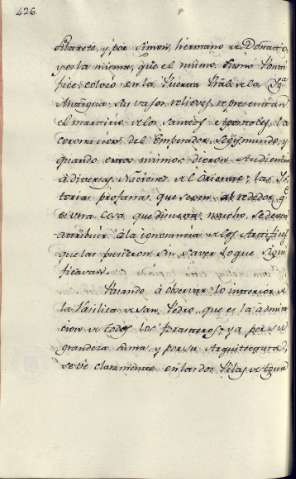 426
Filarete, y por Simon, hermano de Donatelo,
y es la misma, que el mismo Sumo Ponti
fice colocó en la Puerta Real de la Sta.
Antigua. Su vajos relieves representan
el martirio de los Santos Apostoles, la
coronacion del Emperador Segismundo, y
quando estos mismos dieron Audiencia
a diversas Naciones del Oriente; las Is-
torias profanas, que tienen al rededor, qe.
es una cosa que disuena mucho, se deven
atribuir à la ignorancia de los Artifices
que las pusieron sin saver lo que signi
ficavan.
Pasando à observar lo interior de
la Vasilica de San Pedro, que es la admira
cion de todos los forasteros, ya por su
grandeza suma, y por su Arquitectura,
se vé claramente en las dos Pilas de Agua